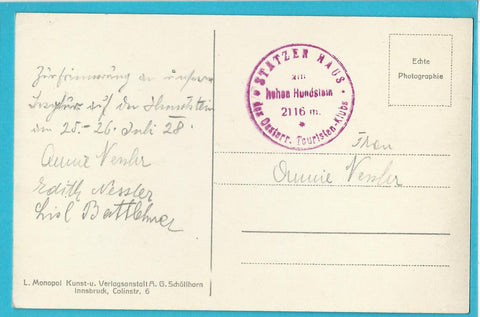 Zur Erinnerung an unsere
auf den Hundstein
am 25.-26. Juli 28.
Annie Nessler
Edith Nessler
Lisl Battlehner
L. Monopol Kunst-u. Verlagsanstalt A. G. Schöllhorn
Innsbruck, Colinstr. 6
STATZER HAUS
am
hohen Hundstein
2116 m.
des Oesterr. Touristen-Klubs
Echte
Photographie
Frau
Annie Nessler